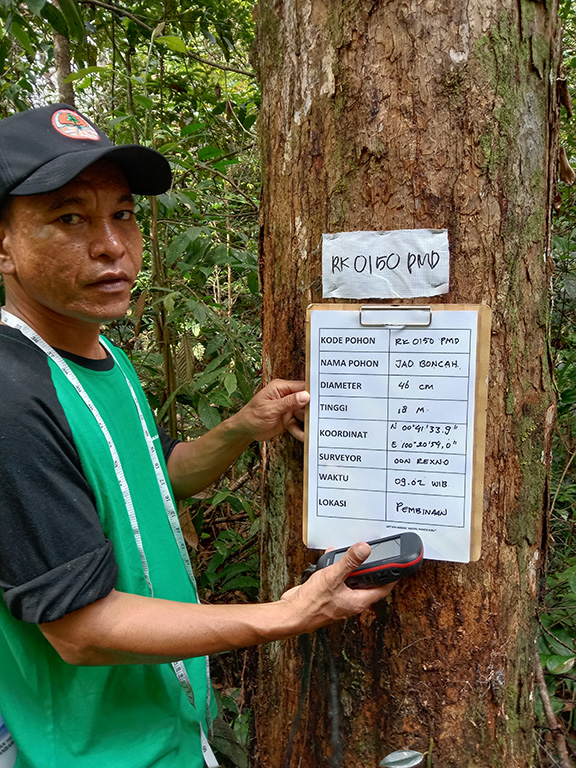 RK 0150 PMD
KODE POHON RK 0150 PMD
NAMA POHON JAD. BONCAH.
DIAMETER 46 CM
TINGGI 18 M.
KOORDINAT N 00°41'33.9"
E 100°20'54,0"
SURVEYOR OON REXNO
WAKTU 09.02 WIB
LOKASI PEMBINAAN